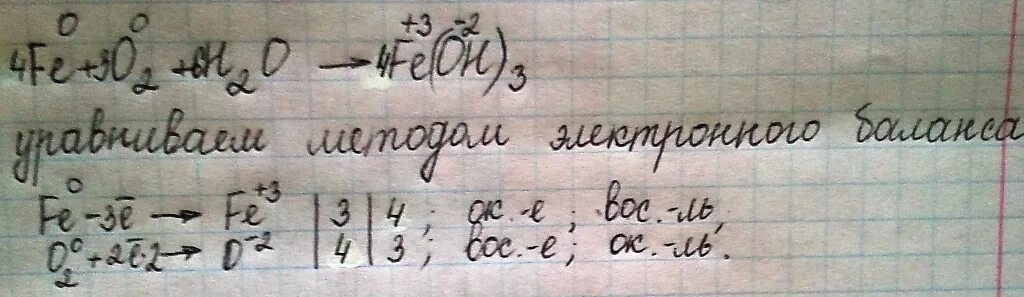 0 0 +3 -2
4Fe + 3O2 + 6H2O → 4Fe(OH)3
уравниваем методом электронного баланса
Fe⁰ - 3e̅ → Fe⁺³ | 3 | 4 ; ок.-е ; вос.-ль,
O₂⁰ + 2e̅·2 → O⁻² | 4 | 3 ; вос.-е; ок.-ль.